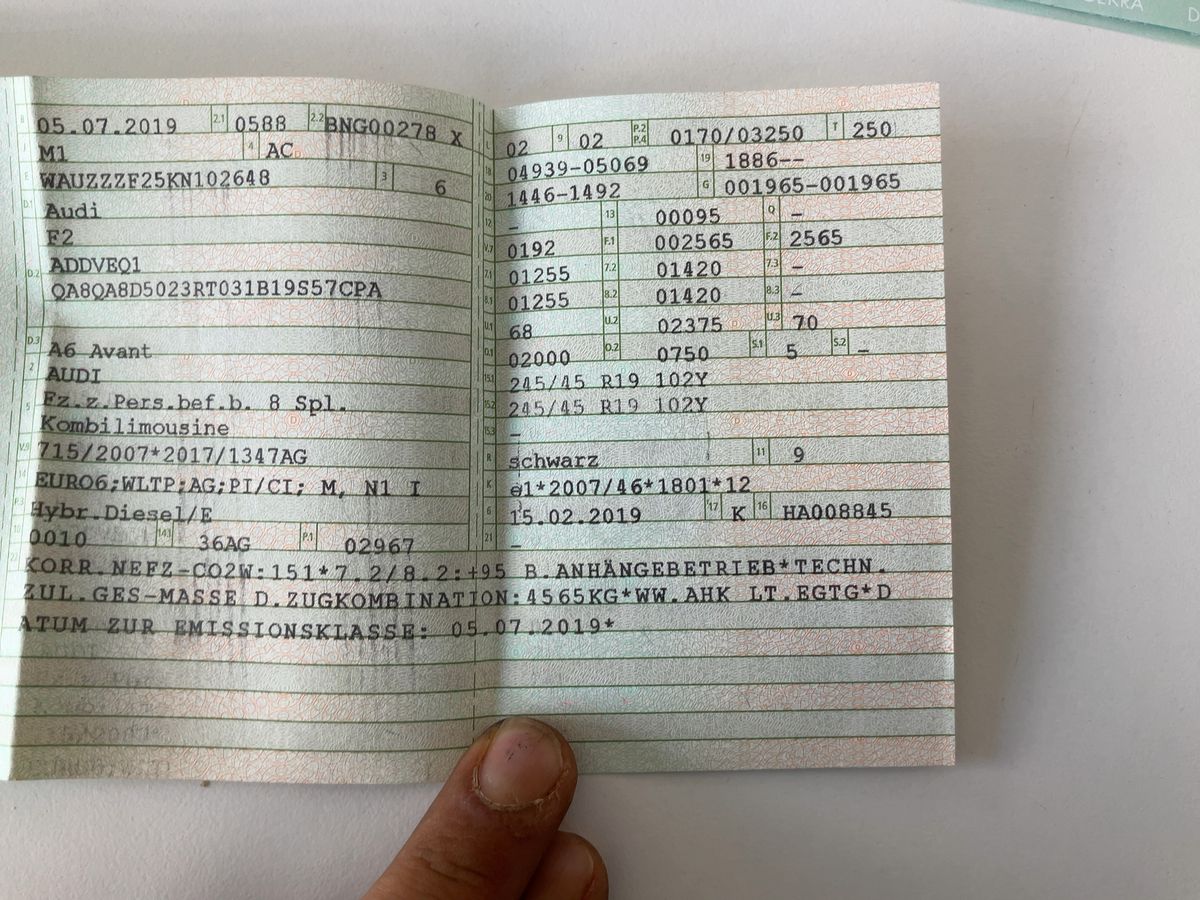 DEKRA
B 05.07.2019 2.1 0588 2.2 BNG00278 X
J M1 4 AC
E WAUZZZF25KN102648 3 6
D.1 Audi
F2
D.2 ADDVEQ1
QA8QA8D5023RT031B19S57CPA
D.3 A6 Avant
2 AUDI
5 Fz.z.Pers.bef.b. 8 Spl.
Kombilimousine
V.9 715/2007*2017/1347AG
14 EURO6;WLTP;AG;PI/CI; M, N1 I
P.3 Hybr.Diesel/E
10 0010 14.1 36AG P.1 02967
L 02 9 02 P.2 P.4 0170/03250 T 250
18 04939-05069 19 1886--
20 1446-1492 G 001965-001965
12 – 13 00095 Q –
V.7 0192 F.1 002565 F.2 2565
7.1 01255 7.2 01420 7.3 –
8.1 01255 8.2 01420 8.3 –
U.1 68 U.2 02375 U.3 70
O.1 02000 O.2 0750 S.1 5 S.2 –
15.1 245/45 R19 102Y
15.2 245/45 R19 102Y
15.3 –
R schwarz 11 9
K e1*2007/46*1801*12
6 15.02.2019 17 K 16 HA008845
21 –
22 KORR.NEFZ-CO2W:151*7.2/8.2:+95 B.ANHÄNGEBETRIEB*TECHN.
ZUL.GES-MASSE D.ZUGKOMBINATION:4565KG*WW.AHK LT.EGTG*D
ATUM ZUR EMISSIONSKLASSE: 05.07.2019*